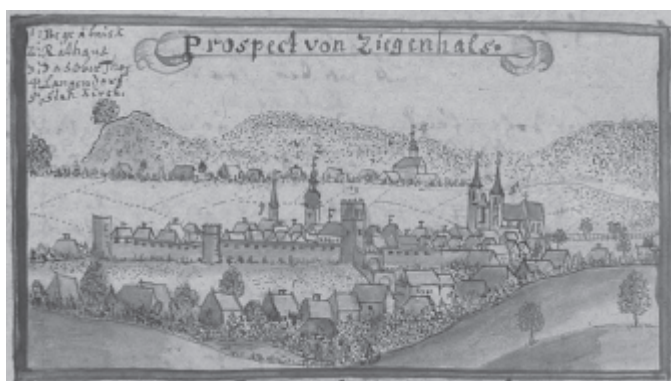 Prospect von Ziegenhals.
2. Rathaus
3. Das Ober Thor
4. Langendorf
5. Stat Kirch.